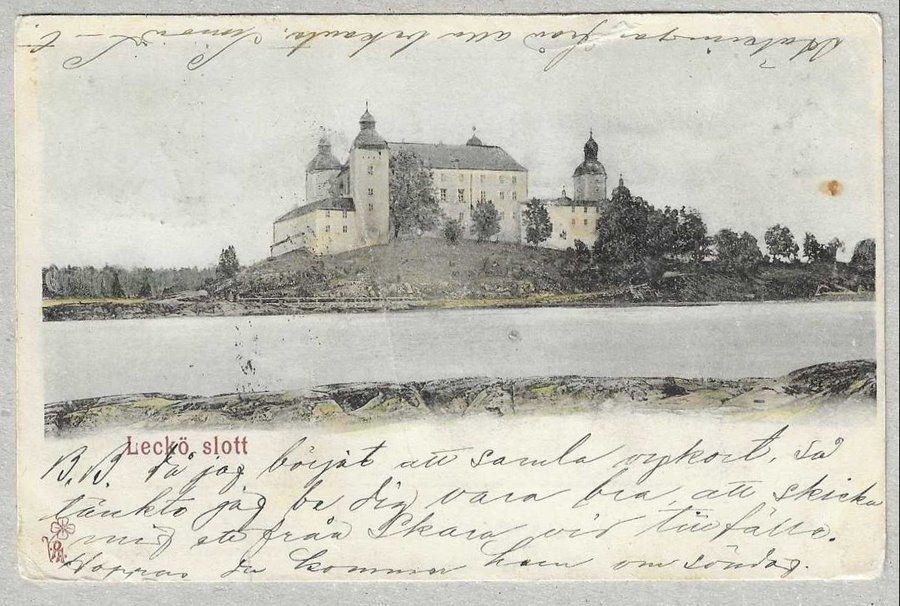 Leckö slott
B.B. Då jag börjat att samla vykort, så
tänkte jag be dig vara bra, att skicka
mig ett från Skara vid tillfälle.
Hoppas du kommer hem om söndag.
Helsningar från alla bekanta.